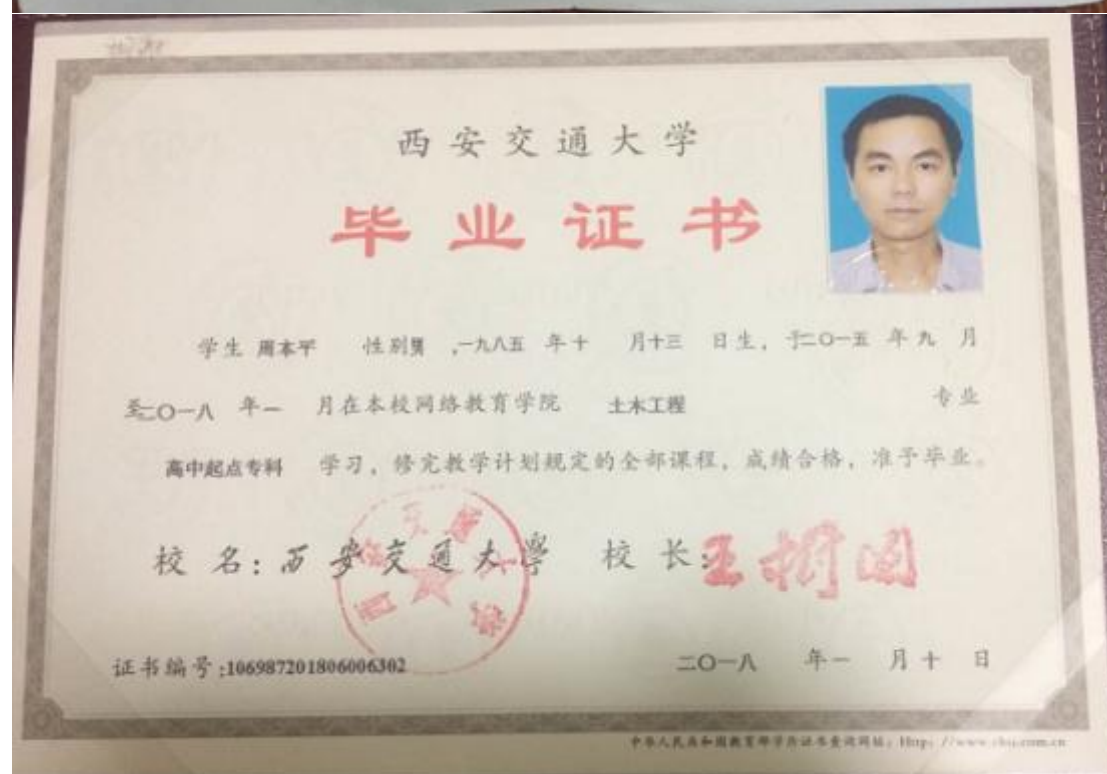 西安交通大学
毕业证书
学生 周本平 性别男 ,一九八五 年十 月十三 日生，于二〇一五 年九 月
至二〇一八 年一 月在本校网络教育学院 土木工程 专业
高中起点专科 学习，修完教学计划规定的全部课程，成绩合格，准予毕业。
校 名：西安交通大學 校 长：王树国
西安交通大学
证书编号:106987201806006302 二〇一八 年一 月十 日
中华人民共和国教育部学历证书查询网址：Http：//www.chsi.com.cn